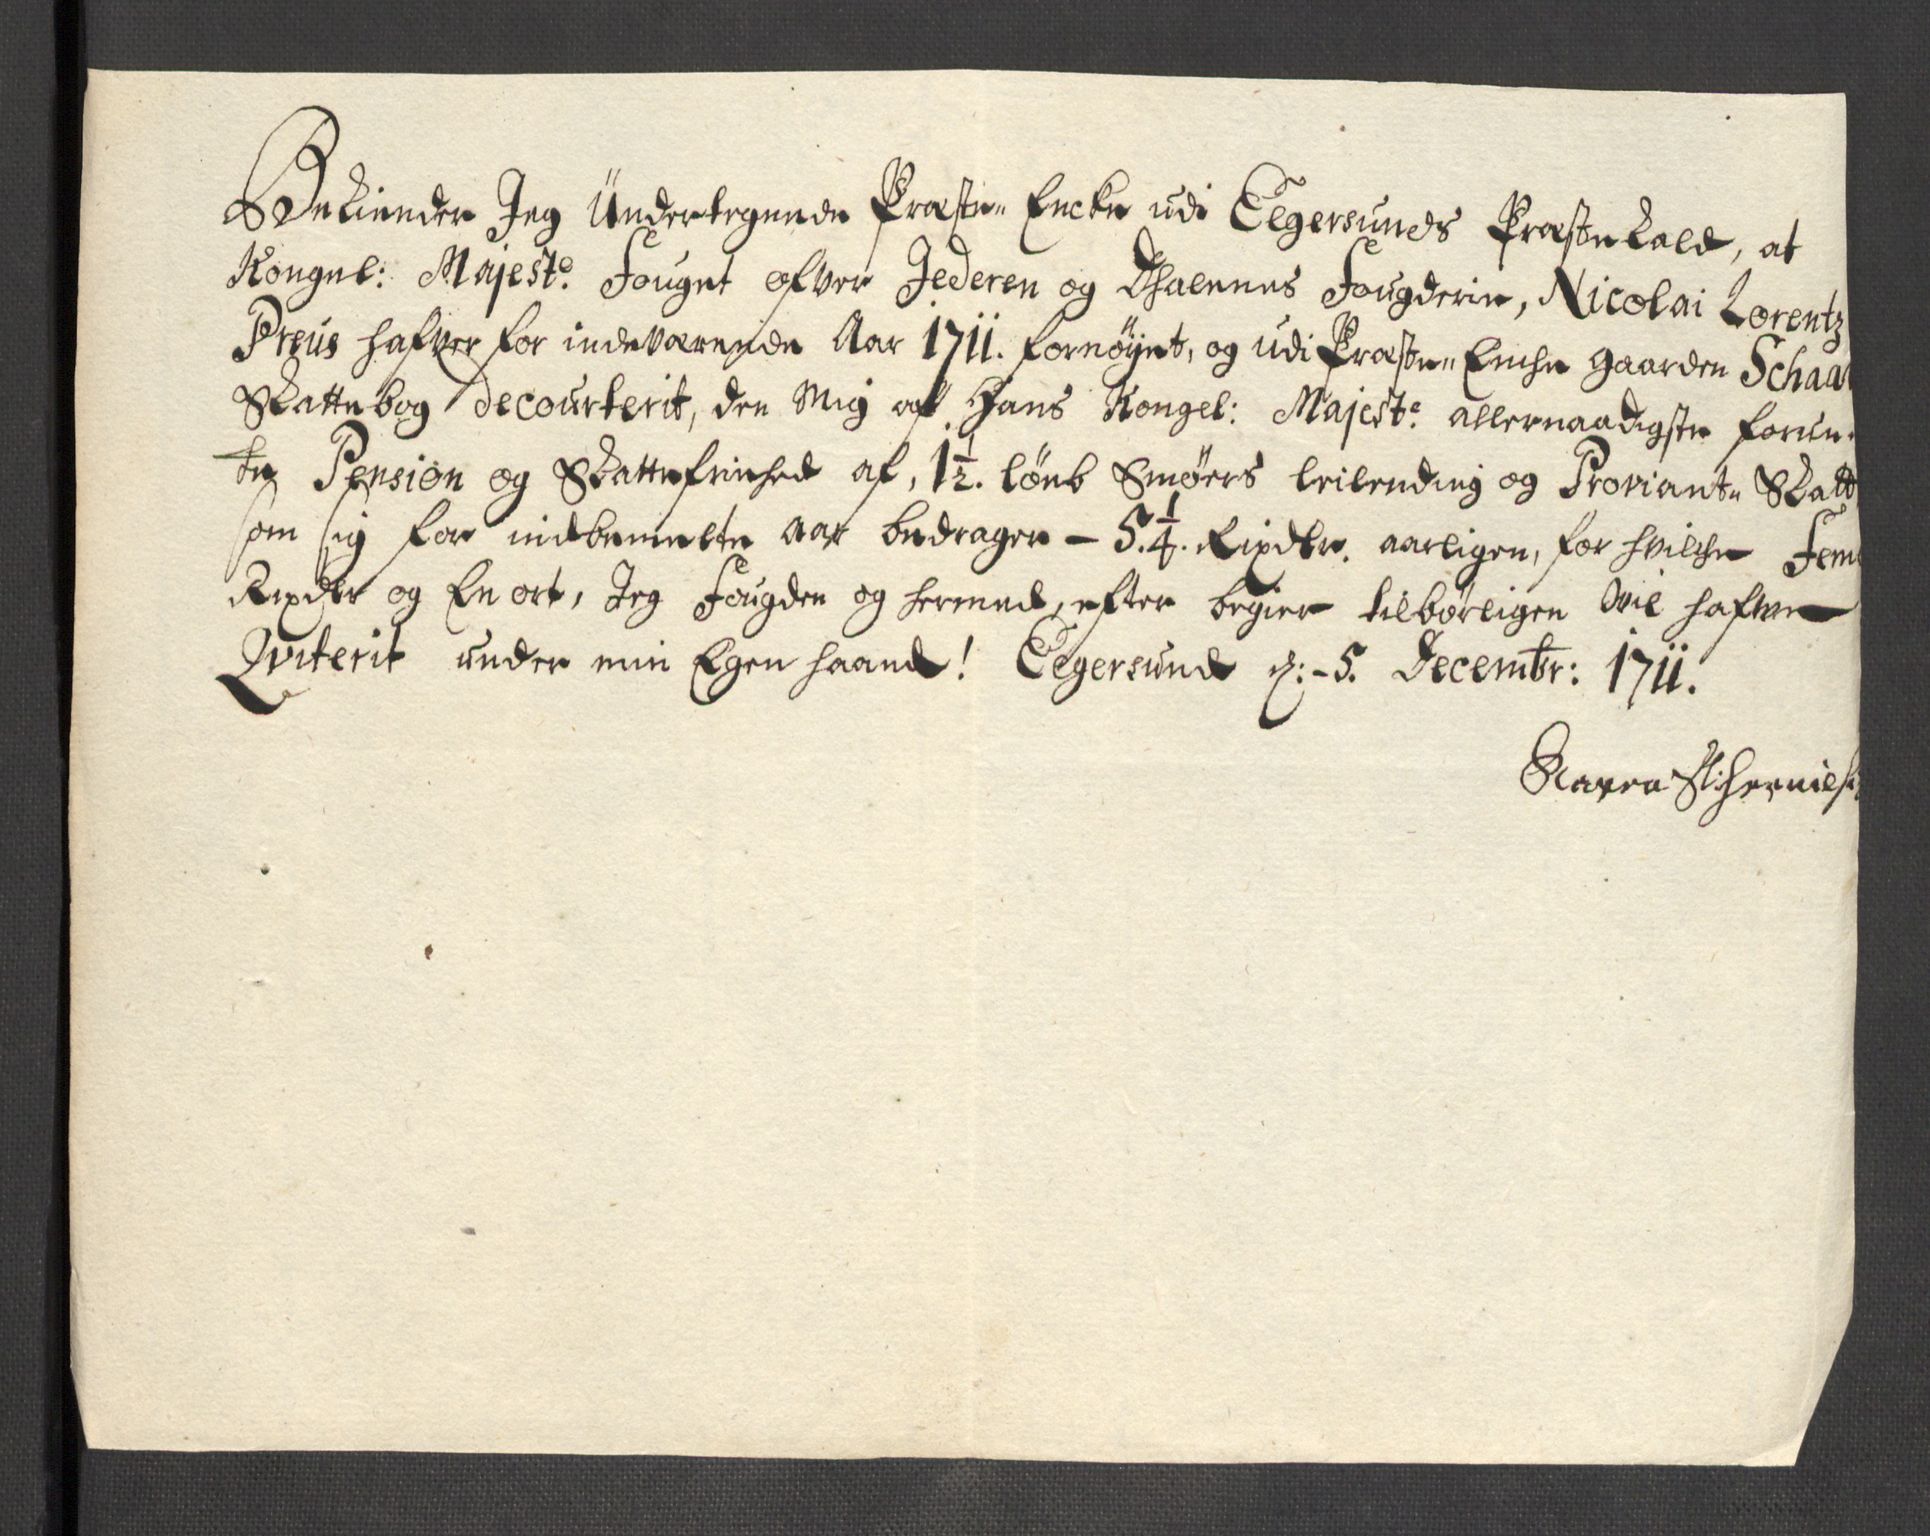 Bekiender Jeg Undertegnede Præste- Encke udi Eegersunds Præstekald, at
Kongel: Majest: Fouget ofver Jederen og Dhalenes Fougderie, Nicolai Lorentz
Preus hafver for indeværende Aar 1711. fornøyet, og udi Præste- Enche gaarden Schaa
Skattebog decourterit, den Mig af Hans Kongel: Majest: allernaadigste forun-
te Pension og Skattefriehed af, 1½. løub Smøers leilending og Proviant- Skatt
som sig for indbemelte aar bedrager - 5.¼. Rixdlr. aarligen, for hvilche Fem
Rixdlr og En ort, Jeg Fougden og hermed, efter begier tilbørligen vil hafve
Qviterit under min Egen haand! Eegersund d: -5. Decembr: 1711.